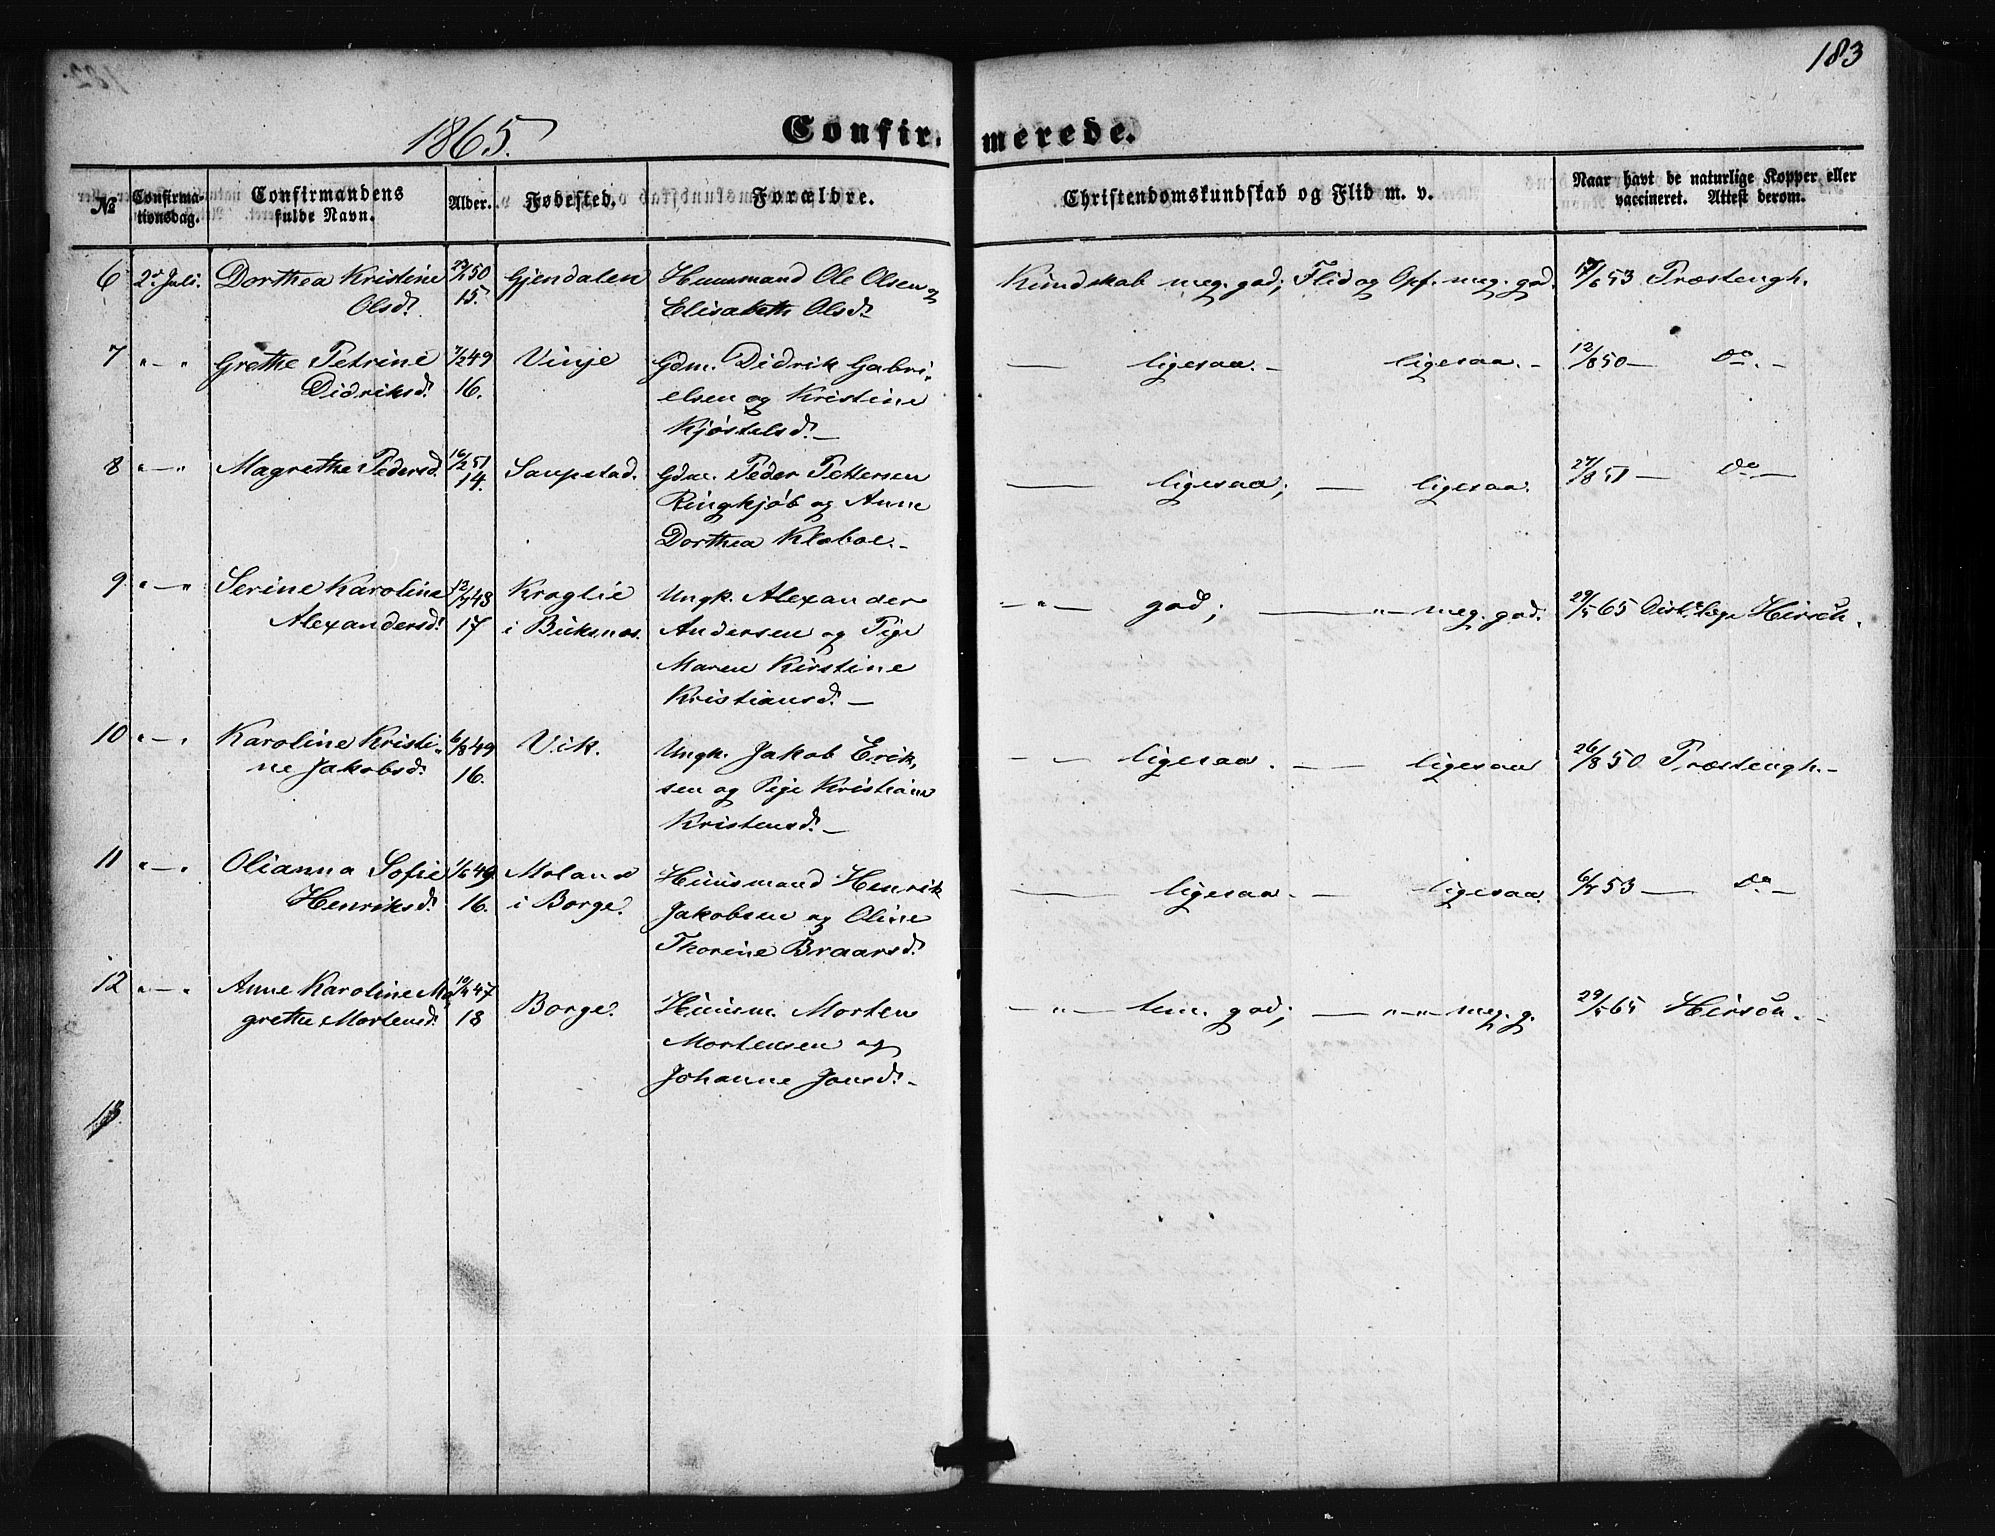 183
1865.
Confir- merede.
№ Confirma- Confirmandens Alder. Fødested. Forældre. Christendomskundskab og Flid m. v. Naar havt de naturlige Kopper eller
tionsdag. fulde Navn. vaccineret. Attest derom.
6 2d Juli. Dorthea Kristine 50 Gjendalen Huusmand Ole Olsen og Kundskab meg. god; Flid og Opf. meg. god. 17/6 53 Præstengh.
Olsd. 15. Elisabeth Olsd.
7 " — " Grethe Petrine 7/2 49 Vinje Gdm. Didrik Gabri- — ligesaa. - ligesaa. - 12/8 50 — Do. -
Didriksd. 16. elsen og Kristine
Kjøstelsd. —
8 " — " Magrethe Pedersd. 16/2 51 Saupstad. Gdm. Peder Pettersen — ligesaa; — ligesaa. 27/8 51 — Do —
14. Ringkjøb og Anne
Dorthea Klæboe. -
9 " — " Serine Karoline 48 Kraglie Ungk. Alexander - " — god; — " — meg. god. 29/5 65 Distr. læge Hirsch.
Alexandersd. 17 i Buksnæs. Andersen og Pige
Maren Kirstine
Kristiansd. —
10 " — " Karoline Kristi- 6/8 49 Vik. Ungk. Jakob Erik- - - ligesaa. - — ligesaa 26/8 50 Præstengh. -
ne Jakobsd. 16. sen og Pige Kristiane
Kristensd. —
11 " — " Olianna Sofie 1/6 49. Moland Huusmand Henrik — ligesaa. — ligesaa. 6/7 53 — Do —
Henriksd. 16. i Borge. Jakobsen og Oline
Thorine Braarsd.
12 " — " Anne Karoline Ma- 10/4 47 Borge. Huusm. Morten - " — tem. god; — " — " meg. g. 29/5 65 Hirsch. -
grethe Mortensd. 18 Mortensen og
Johanne Jonsd. -
13